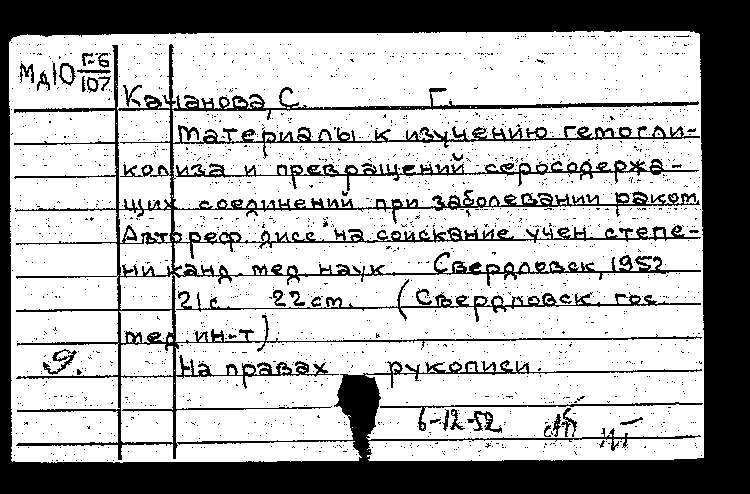 Мд10 Г-6
107
Качанова, С. Г.
Материалы к изучению гемогли-
колиза и превращений серосодержа-
щих соединений при заболевании раком
Автореф. дисс. на соискание учен степе-
ни канд. мед. наук. Свердловск, 1952
21 с. 22 cm. (Свердловск. гос.
мед. ин-т)
9.
На правах рукописи.
6-12-52